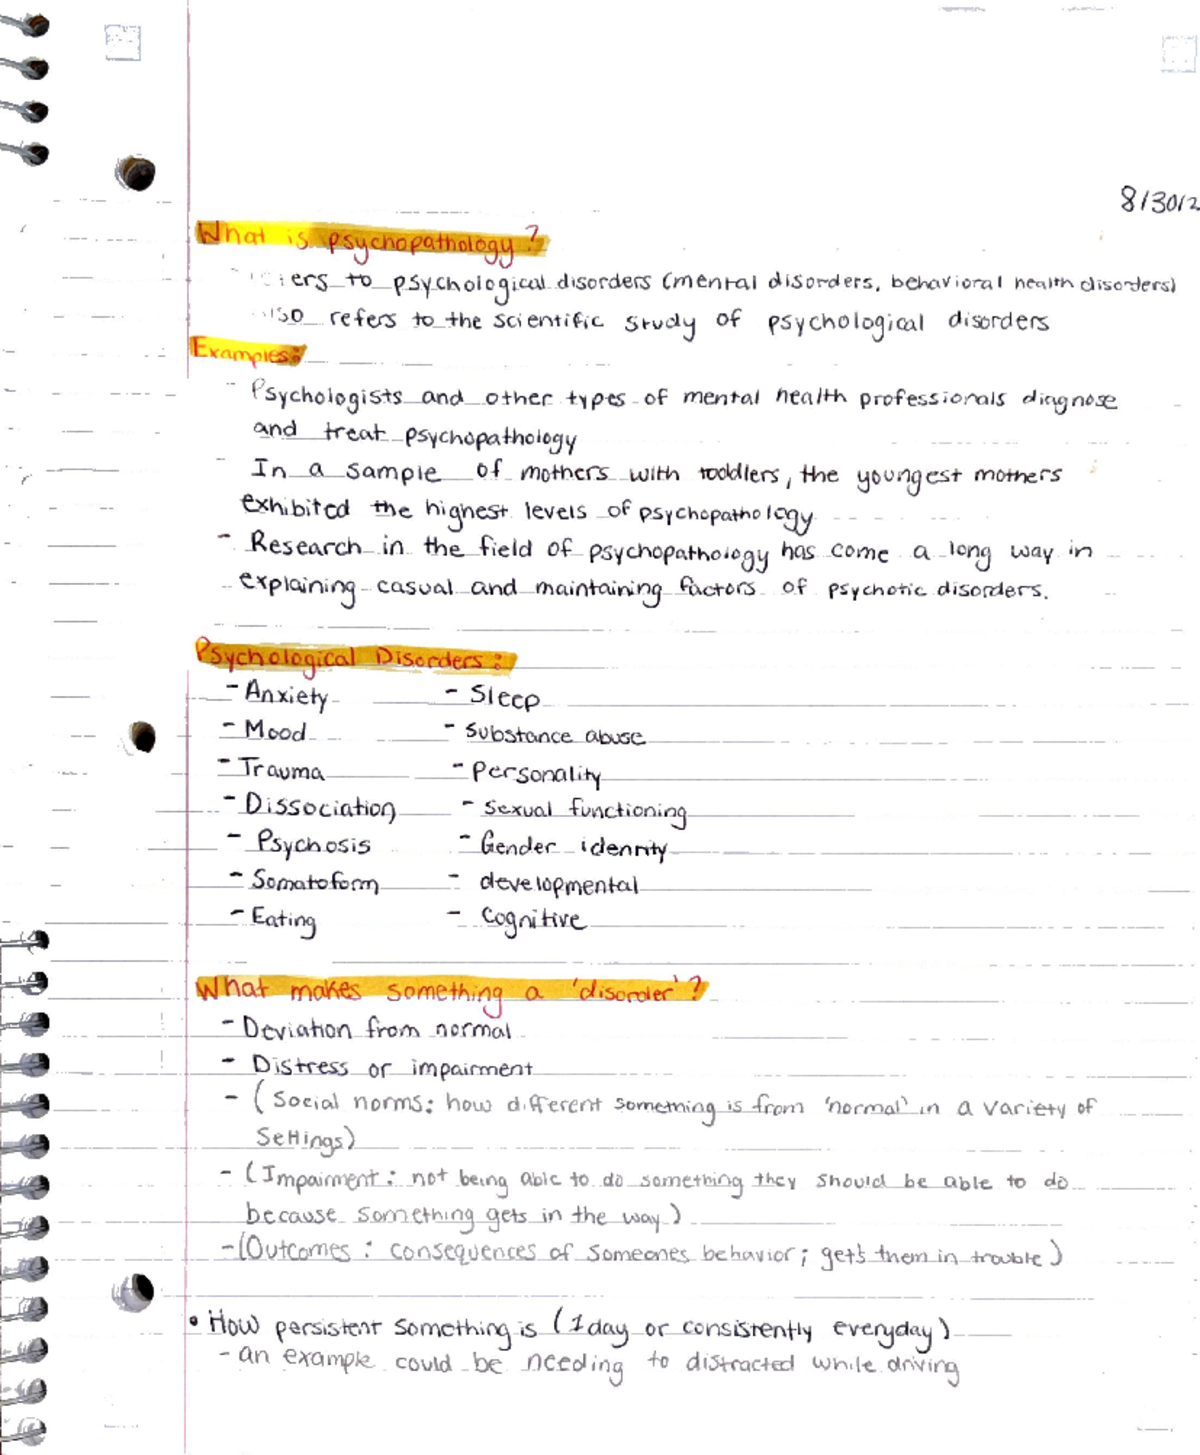 8/30/2
What is psychopathology?
ers to psychological disorders (mental disorders, behavioral health disorders)
lso refers to the scientific study of psychological disorders
Examples:
- Psychologists and other types of mental health professionals diagnose
and treat psychopathology
- In a sample of mothers with toddlers, the youngest mothers
exhibited the highest levels of psychopathology
- Research in the field of psychopathology has come a long way in
explaining casual and maintaining factors of psychotic disorders.
Psychological Disorders:
- Anxiety - Sleep
- Mood - Substance abuse
- Trauma - Personality
- Dissociation - Sexual functioning
- Psychosis - Gender identity
- Somatoform - developmental
- Eating - Cognitive
What makes something a 'disorder'?
- Deviation from normal
- Distress or impairment
- (Social norms: how different something is from 'normal' in a variety of
Settings)
- (Impairment: not being able to do something they should be able to do
because something gets in the way)
- (Outcomes: consequences of someones behavior; get's them in trouble)
• How persistent something is (1 day or consistently everyday)
- an example could be needing to distracted while driving